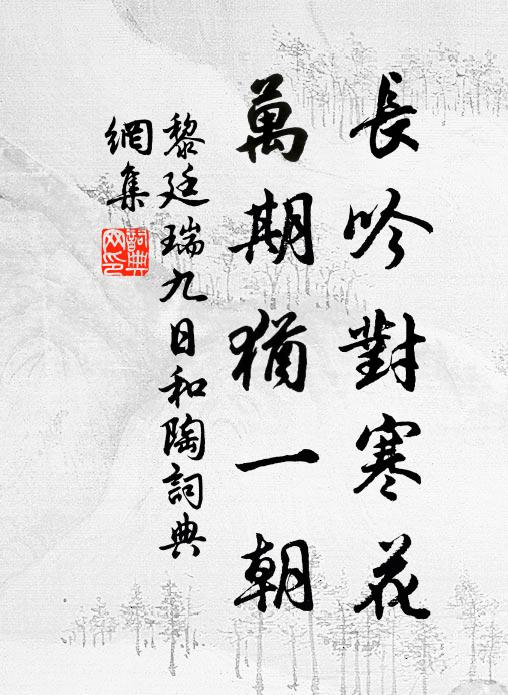 長吟對寒花
萬期猶一朝
黎廷瑞九日和陶詞典
網集
詞典網印